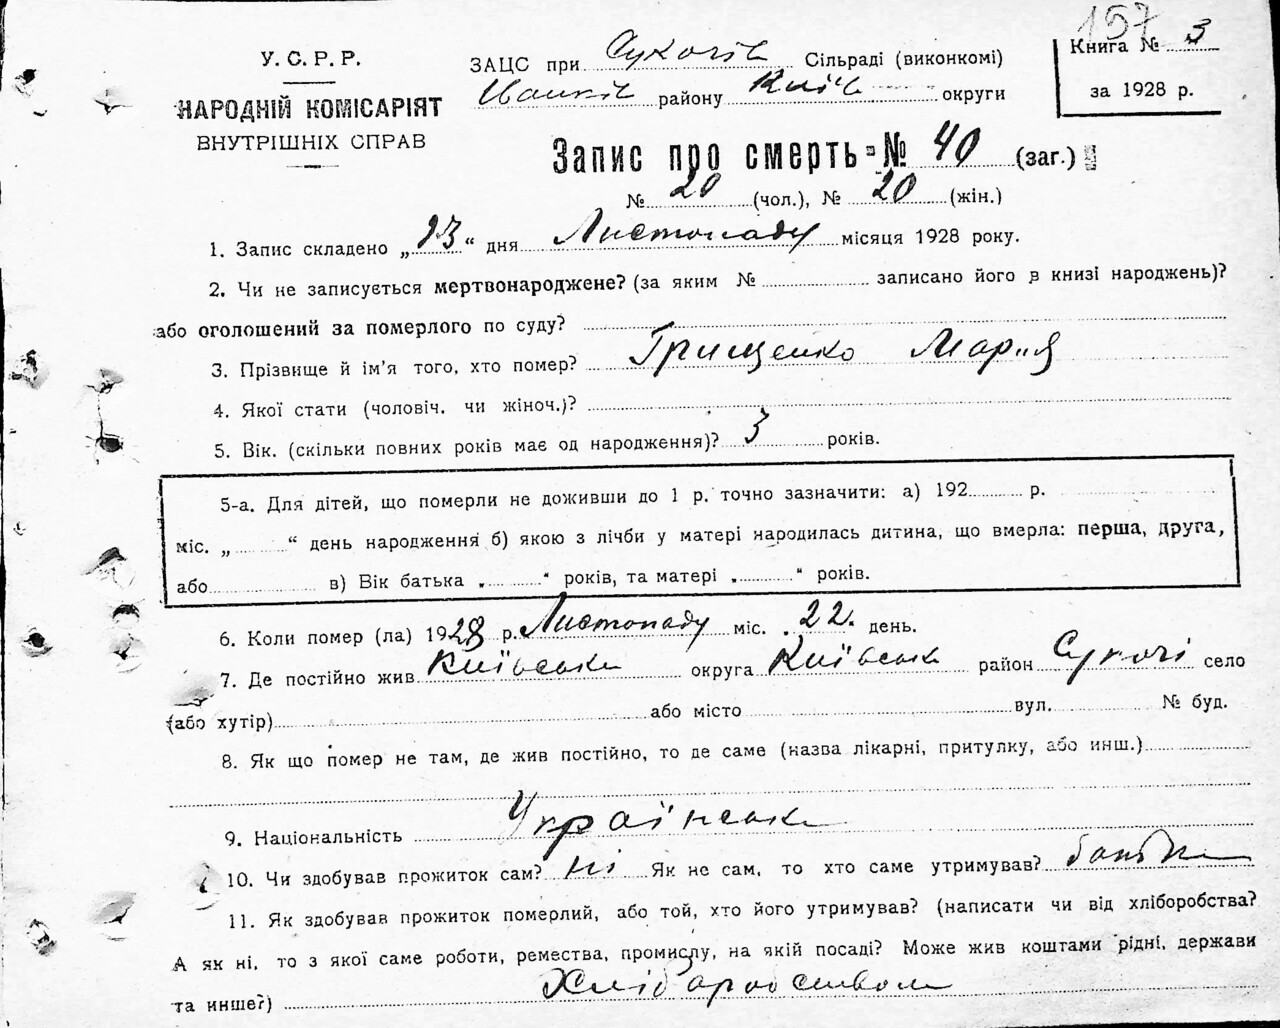 157
У. С. Р. Р.
НАРОДНІЙ КОМІСАРІЯТ
ВНУТРІШНІХ СПРАВ
ЗАЦС при Сукачів Сільраді (виконкомі)
Іванків району Київ округи
Книга № 3
за 1928 р.
Запис про смерть № 40 (заг.)
№ 20 (чол.), № 20 (жін.)
1. Запис складено „23“ дня Листопаду місяця 1928 року.
2. Чи не записується мертвонароджене? (за яким № записано його в книзі народжень)?
або оголошений за померлого по суду?
3. Прізвище й ім’я того, хто помер? Грищенко Мария
4. Якої стати (чоловіч. чи жіноч.)?
5. Вік. (скільки повних років має од народження)? 3 років.
5-а. Для дітей, що померли не доживши до 1 р. точно зазначити: а) 192 р.
міс. „ “ день народження б) якою з лічби у матері народилась дитина, що вмерла: перша, друга,
або в) Вік батька „ “ років, та матері „ “ років.
6. Коли помер (ла) 1928 р. Листопаду міс. 22 день.
7. Де постійно жив Київська округа Київська район Сукачі село
(або хутір) або місто вул. № буд.
8. Як що помер не там, де жив постійно, то де саме (назва лікарні, притулку, або инш.)
9. Національність Українська
10. Чи здобував прожиток сам? ні Як не сам, то хто саме утримував? батьки
11. Як здобував прожиток померлий, або той, хто його утримував? (написати чи від хліборобства?
А як ні, то з якої саме роботи, ремества, промислу, на якій посаді? Може жив коштами рідні, держави
та инше?) Хліб аробством